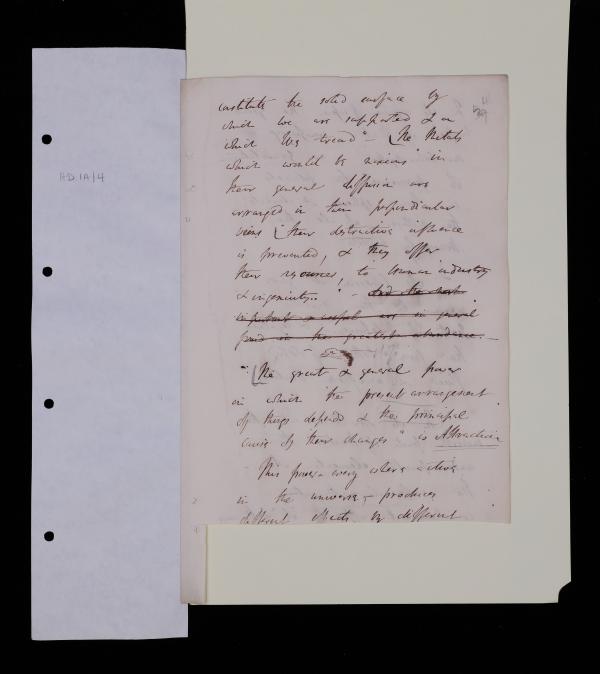 HD.1A/4
39
constitute the solid surface by
which we are supported & on
which we tread" - The Metals
which would be noxious in
their general diffusion are
arranged in thin perpendicular
veins their destructive influence
is prevented, & they offer
their resources, to human industry
& ingenuity. " - And the most
important & useful are in general
found in the greatest abundance. -
"The great & general power
on which the present arrangement
of things depends & the principal
cause of their changes " is Attraction
This power every where active
in the universe - produces
different effects by different